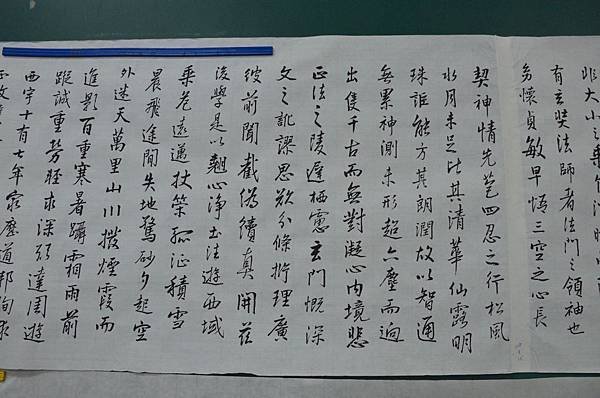 大小之乘乍沿時而
有玄奘法師者法門之領袖也
幼懷貞敏早悟三空之心長
契神情先苞四忍之行松風
水月未足比其清華仙露明
珠詎能方其朗潤故以智通
無累神測未形超六塵而迥
出隻千古而無對凝心內境悲
正法之陵遲栖慮玄門慨深
文之訛謬思欲分條析理廣
彼前聞截偽續真開茲
後學是以翹心淨土法遊西域
乘危遠邁杖策孤征積雪
晨飛途閒失地驚砂夕起空
外迷天萬里山川撥煙霞而
進影百重寒暑躡霜雨前
蹤誠重勞輕求深願達周遊
西宇十有七年窮歷道邦詢求
正教